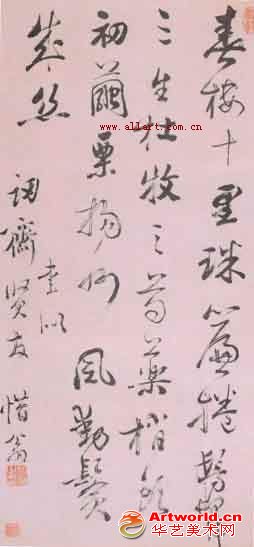 春十里珠簾捲髣髴
三生杜牧之芍藥梢頭
初繭栗揚州風動鬢
成絲
書似
齋賢友
惜翁
www.allart.com.cn
Artworld.org.cn
华艺美术网